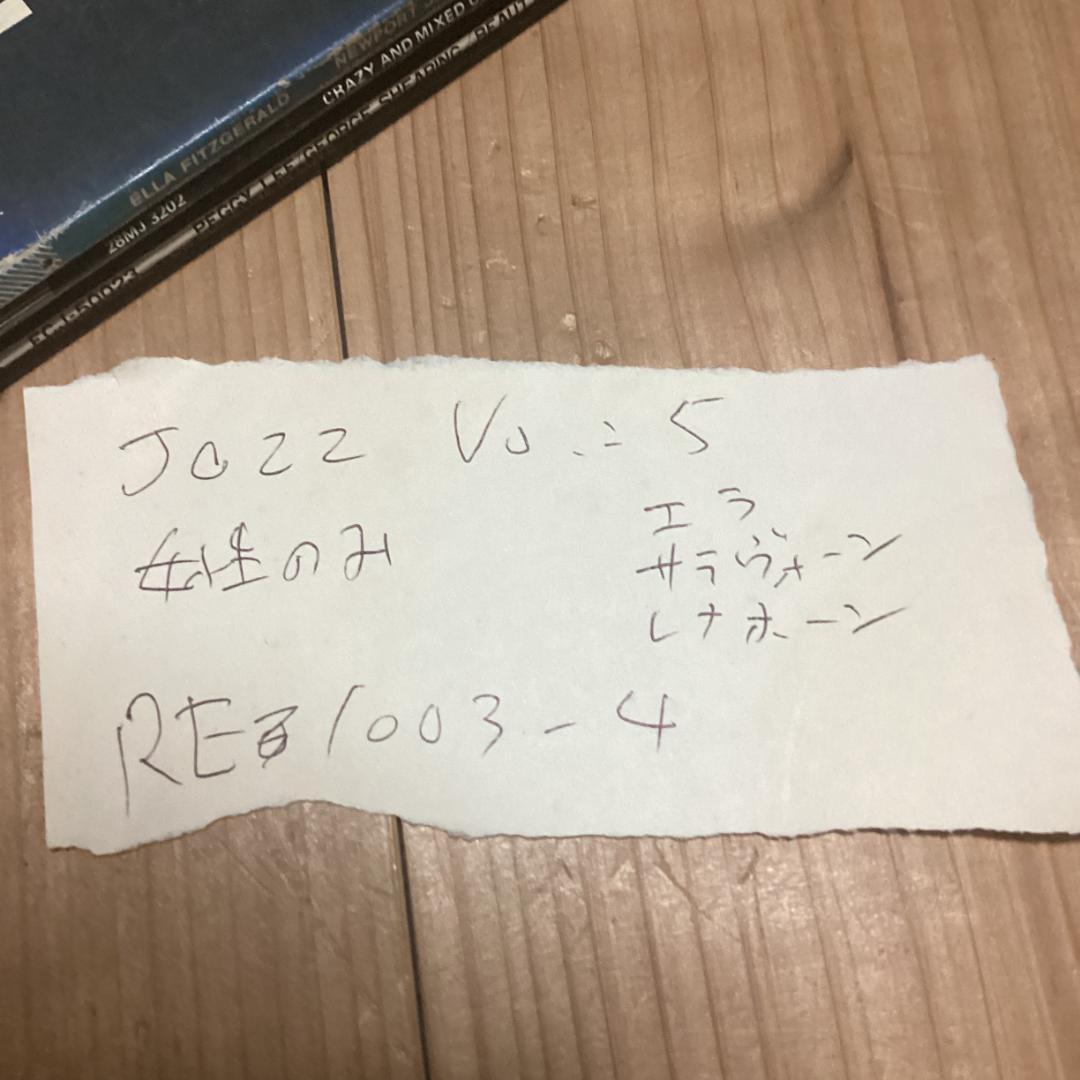 ELLA FITZGERALD NEWPORT
28MJ 3202 CRAZY AND MIXED
PEGGY LEE GEORGE SHEARING BEAUT
Jazz Vo.=5
女性のみ
エラ
サラヴォーン
レナホーン
1003-4